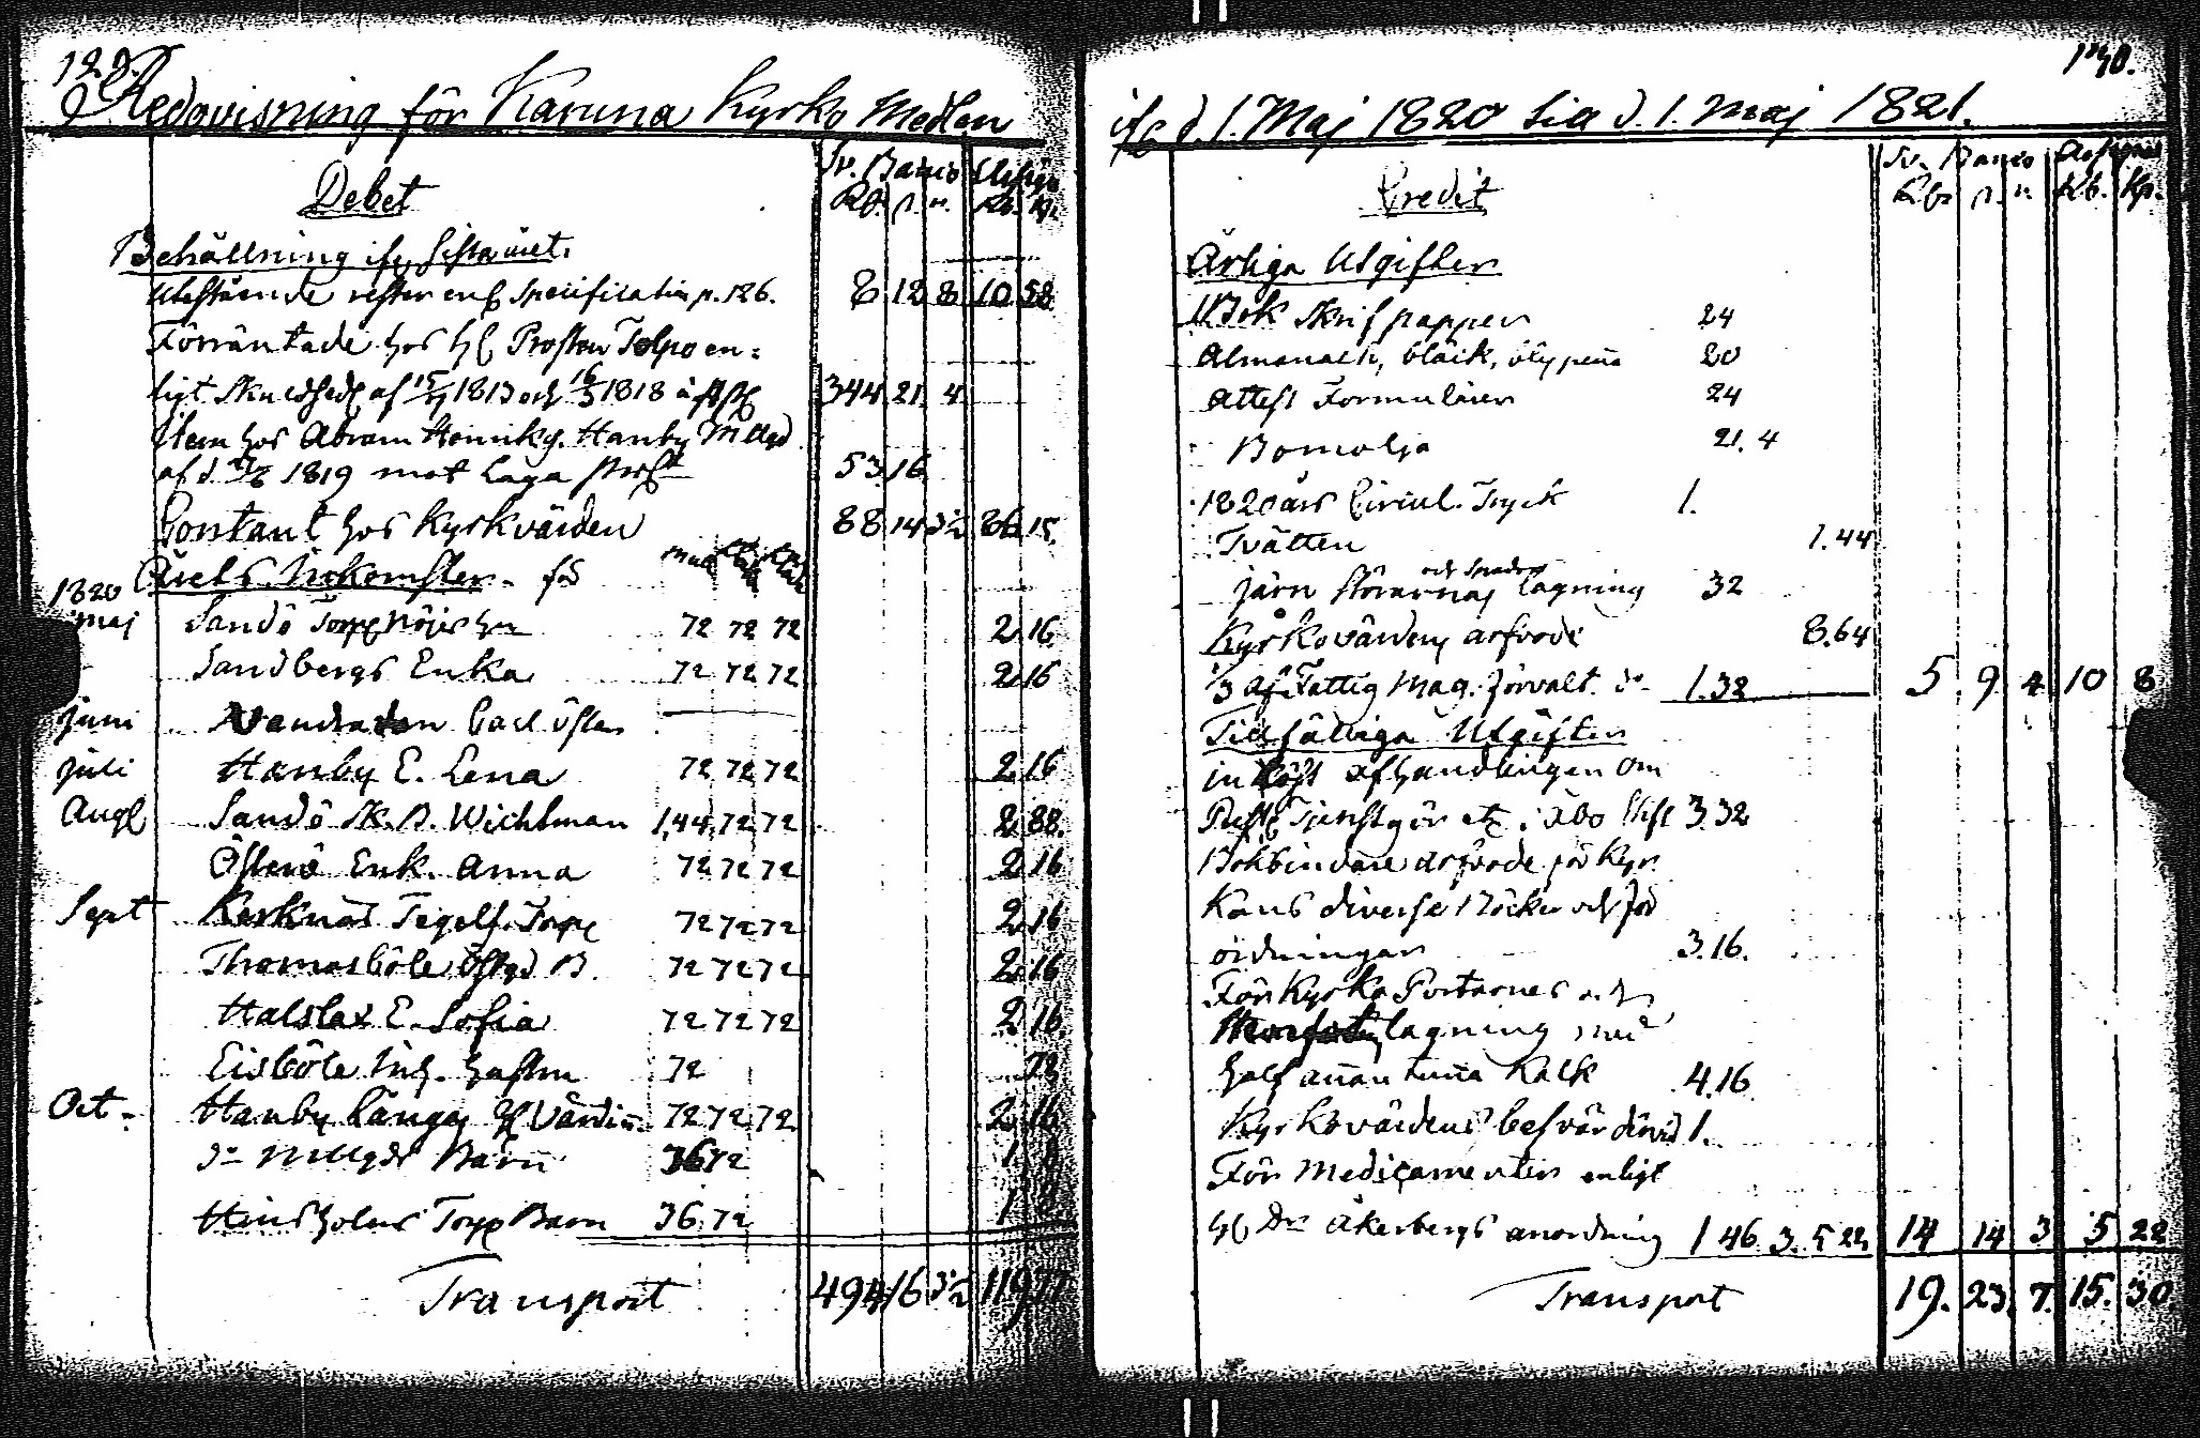 129.
Redovisning för Karuna Kyrko Medlen
Debet
Sv. Banco
Behållning ifr. sista året.
Utestående rester enl. Specification p. 126. 8 12 8 10 58
Förräntade hos Prosten Tolpo en=
ligt Skuldsed. af 1813 och 1818 344 21 4
Item hos Abram Henriks. Hanby
af d. 1819 mot Laga 53 16
Contant hos Kyrkvärden 88 14 3½ 86 15
Årets Inkomster. för
1820
Maj Sandö Torp 72 72 72 2 16
Sandbergs Enka 72 72 72 2 16
Juni Carl Östen
Juli Hanby E. Lena 72 72 72 2 16
Aug Sandö Sk. B. Wichtman 1,44 72 72 2 88
Österö Enk. Anna 72 72 72 2 16
Sept Kerknäs Torp 72 72 72 2 16
Thomasböle B. 72 72 72 2 16
Halslax E. Sofia 72 72 72 2 16
Eisböle 72 72
Oct. Hanby Långg. Värdin. 72 72 72 2 16
Barn 36 72 1 8
Torp Barn 36 72 1 8
Transport 494 16 3½ 119 77
130.
ifr. d. 1. Maj 1820 till d. 1. Maj 1821.
Credit
Sv. Banco
Årliga Utgifter
1 Bok Skrifpapper 24
Almanach, bläck, 20
Attest Formulärer 24
Bomolja 21. 4
1820 års Circul. Tryck 1.
Tvätten 1.44
och Spadar
järn Störarnas lagning 32
Kyrkovärdens arfvode 8.64
⅓ af Fattig Mag. förvalt. do 1.32 5 9 4 10 8
Tillfälliga Utgifter
inköpt afhandlingen om
Tjenstgör etc i Åbo Stift 3.32
Bokbindare arfvode för Kyr-
kans diverse Böcker och för
ordningar 3.16.
För Kyrko Portarnes och
lagning med
half annan tunna Kalk 4.16
Kyrkovärdens besvär dervid 1.
För Medicamenter enligt
Dr Åkerbergs anordning 1 46 3. 5 22 14 14 3 5 22
Transport 19. 23. 7. 15. 30